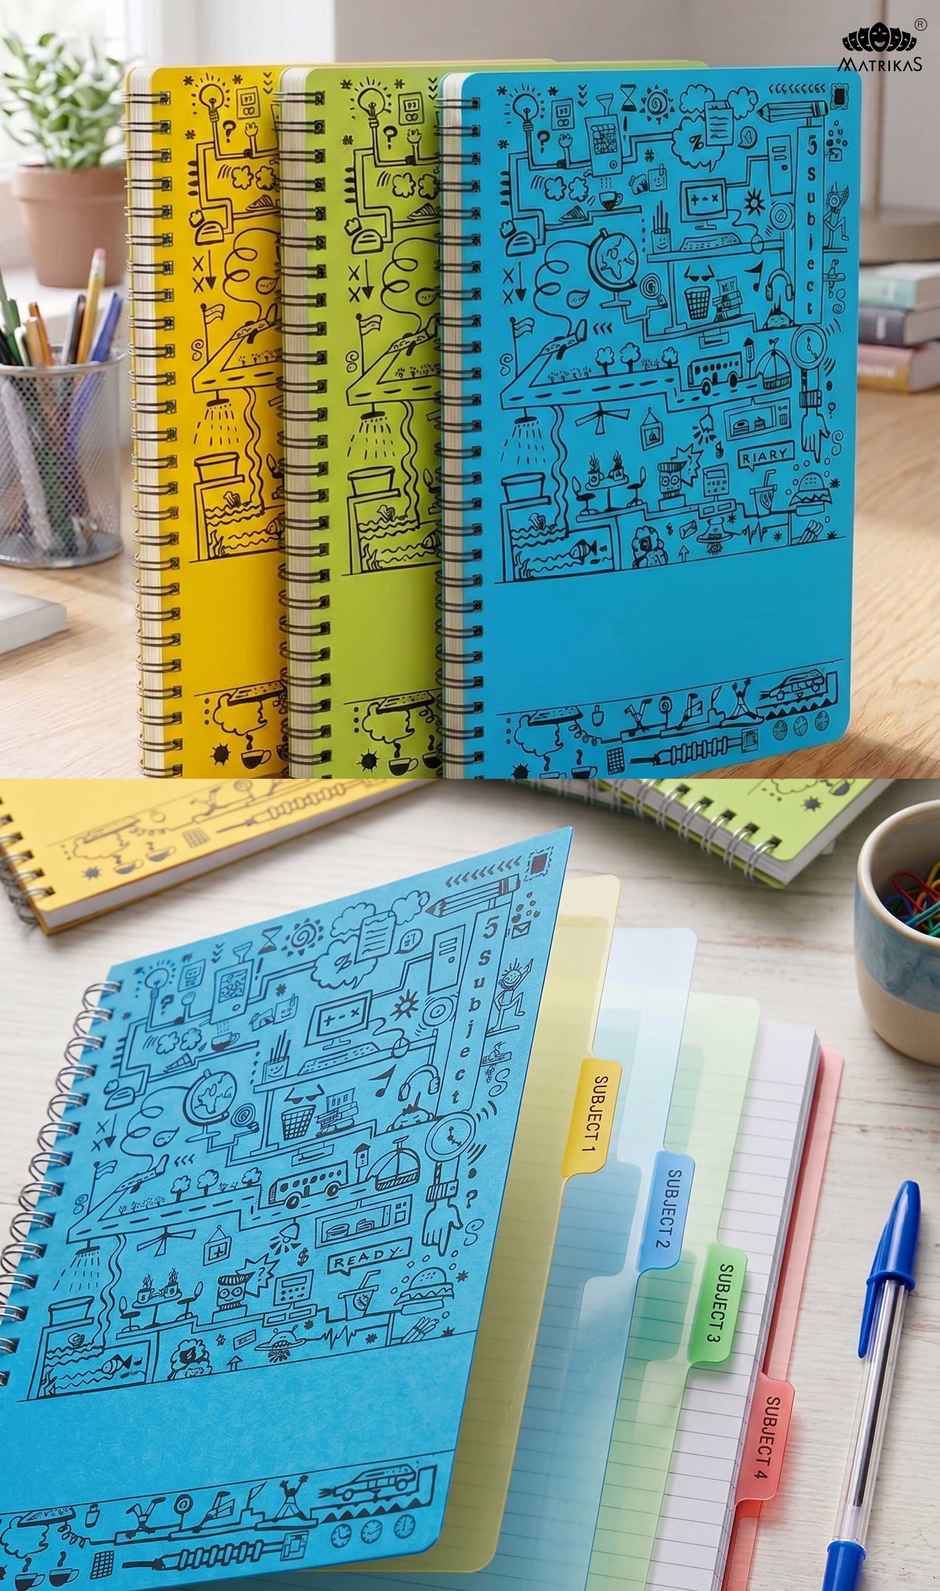 MATRIKAS
5 subject
RIARY
5 subject
READY
SUBJECT 1
SUBJECT 2
SUBJECT 3
SUBJECT 4